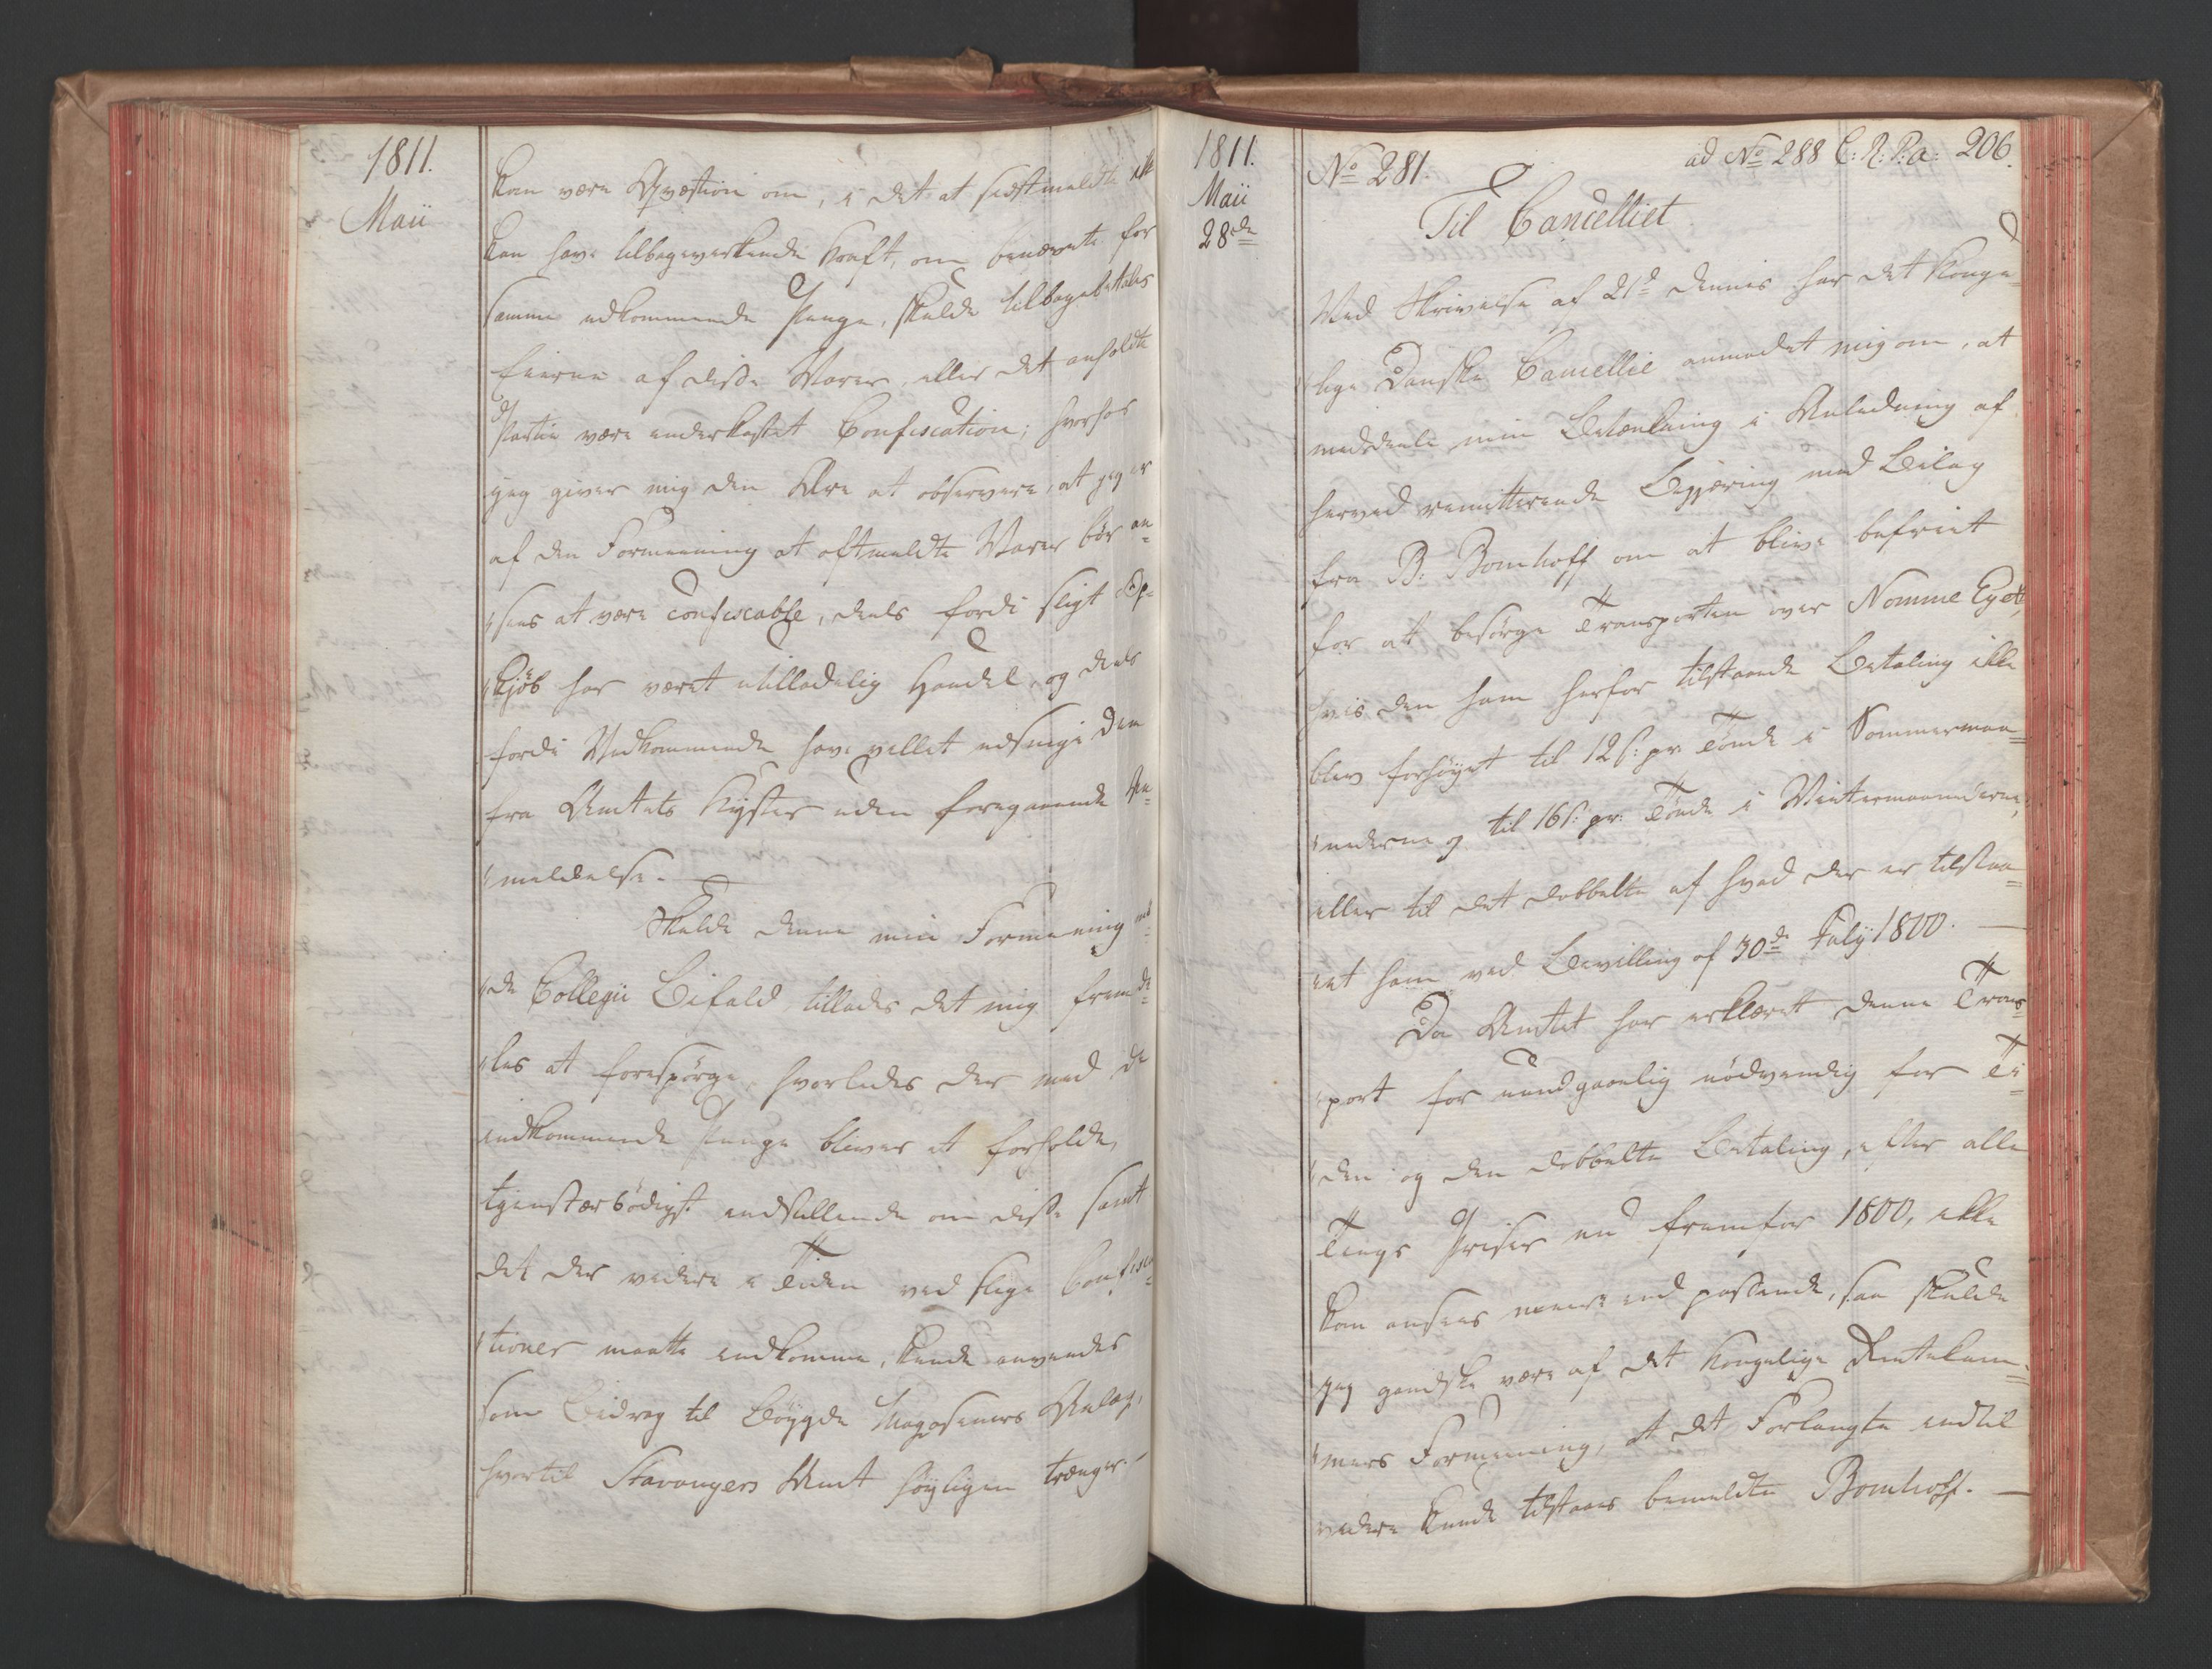 1811.
Maii
kan være Qvæstion om, i det at sidstmeldte ikke
kan have tilbagevirkende Kraft, om benævnte for
samme indkommende Penge, skulde tilbagebetales
Eierne af disse Varer, eller det anholdte
Partie være underkastet Confiscation; hvorhos
jeg giver mig den Ære at observere, at jeg er
af den Formeening at oftmeldte Varer bör an-
sees at være confiscable, deels fordi sligt Op-
kjöb har været utilladelig Handel, og deels
fordi Vedkommende have villet udsnige dem
fra Amtets Kyster uden foregaaende An-
meldelse.
Skulde denne min Formeening
de Collegii Bifald, tillades det mig fremde-
les at forespörge, hvorledes der med de
indkommende Penge bliver at forholde,
tjenstærbödigst indstillende om disse samt
det der videre i Tiden ved slige Confisca-
tioner maatte indkomme, kunde anvendes
som Bidrag til Böygde Magasiners Anlæg,
hvortil Stavangers Amt höyligen trænger.
1811.
Maii
28de
No 281.
ad No 288 C: R: P: a: 206.
Til Cancelliet
Ved Skrivelse af 21d dennes har det Konge-
lige Danske Cancellie anmodet mig om, at
meddeele min Betænkning i Anledning af
herved remitterende Begjæring med Bilag
fra B: Bomhoff om at blive befriet
for at besörge Transporten over Nomme Eyet,
hvis den ham herfor tilstaaede Betaling ikke
blev forhöyet til 12 s: pr Tönde i Sommermaa-
nederne og til 16 s: pr: Tönde i Vintermaanederne,
eller til det dobbelte af hvad der er tilstaa-
et ham ved Bevilling af 30de July 1800.
Da Amtet har erklæret denne Trans-
port for uundgaaelig nödvendig for Ti-
den og den dobbelte Betaling, efter alle
Tings Priser nu fremfor 1800, ikke
kan ansees meere end passende, saa skulde
jeg gandske være af det Kongelige Rentekam-
mers Formeening, at det Forlangte indtil
videre kunde tilstaaes bemeldte Bomhoff.